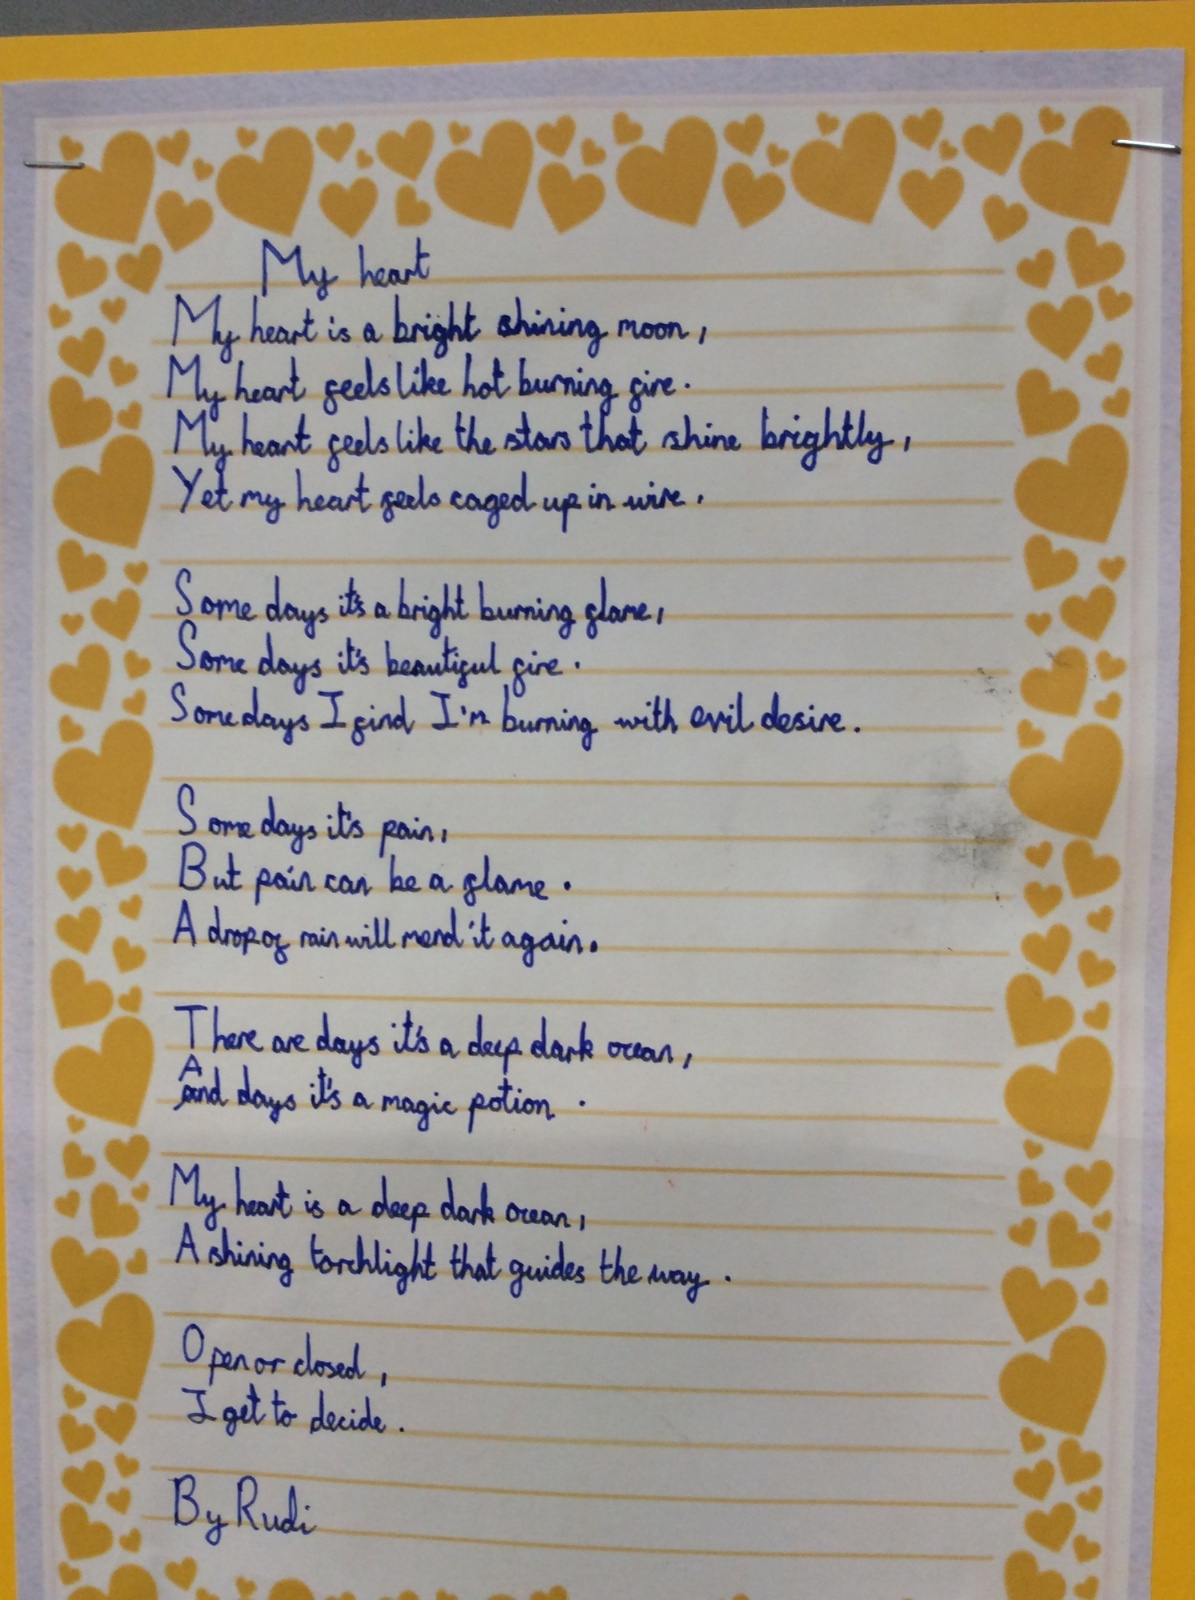 My heart
My heart is a bright shining moon,
My heart feels like hot burning fire.
My heart feels like the stars that shine brightly,
Yet my heart feels caged up in wire.
Some days it's a bright burning flame,
Some days it's beautiful fire.
Some days I find I'm burning with evil desire.
Some days it's pain,
But pain can be a flame.
A drop of rain will mend it again.
There are days it's a deep dark ocean,
And days it's a magic potion.
My heart is a deep dark ocean,
A shining torchlight that guides the way.
Open or closed,
I get to decide.
By Rudi